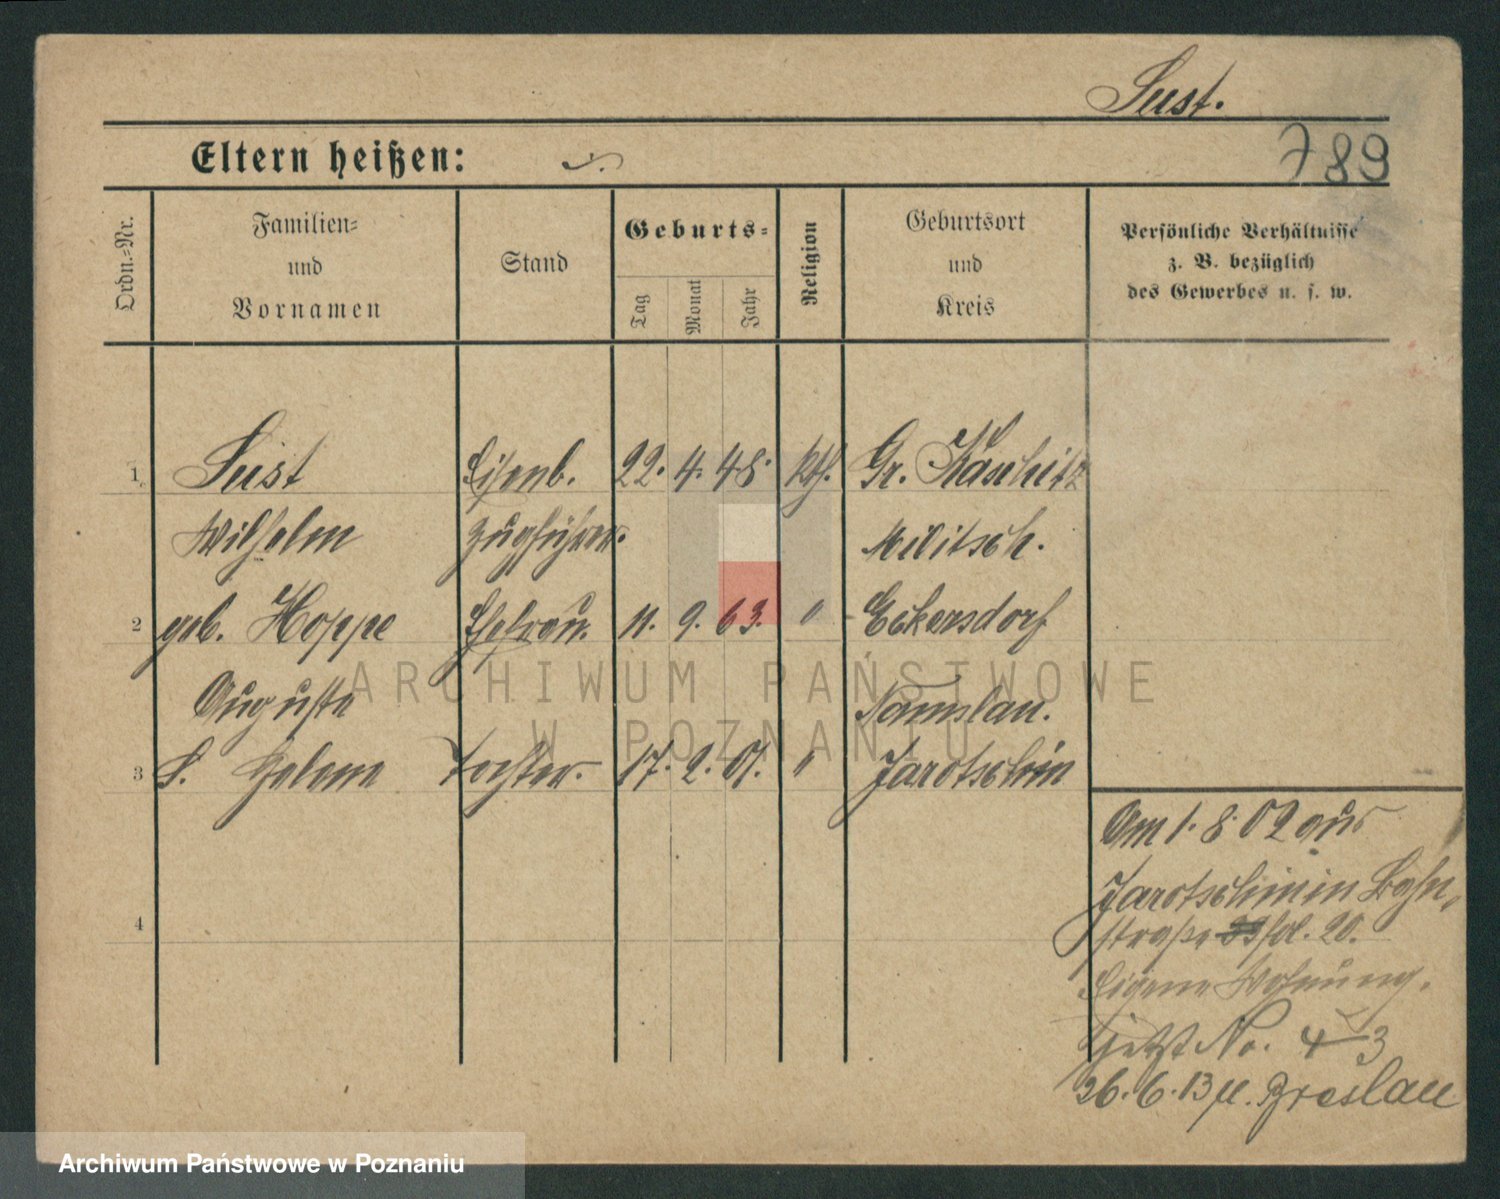 Sust.
Eltern heißen:
789
Ordn.-Nr.
Familien-
und
Vornamen
Stand
Geburts-
Tag
Monat
Jahr
Religion
Geburtsort
und
Kreis
Persönliche Verhältnisse
z. B. bezüglich
des Gewerbes u. s. w.
1. Sust Eisenb. 22. 4. 48. kth. Gr. Kaschitz
Wilhelm Zugführer. Militsch.
2 geb. Hoppe Ehefrau. 11. 9. 63. " Eckersdorf
Auguste Namslau.
3 S. Helene Tochter. 17. 2. 01. " Jarotschin
4
Am 1. 8. 02 aus
Jarotschin in Bahn-
straße 20.
Eigene Wohnung.
jetzt No. 4 3
26. 6. 13 Breslau
ARCHIWUM PAŃSTWOWE
W POZNANIU
Archiwum Państwowe w Poznaniu